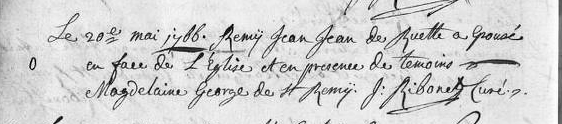 Le 20e mai 1786. Remÿ Jean Jean de Ruette a épousé
0 en face de L'Église et en presence de temoins
Magdelaine George de St Remÿ. J: Ribonet Curé.